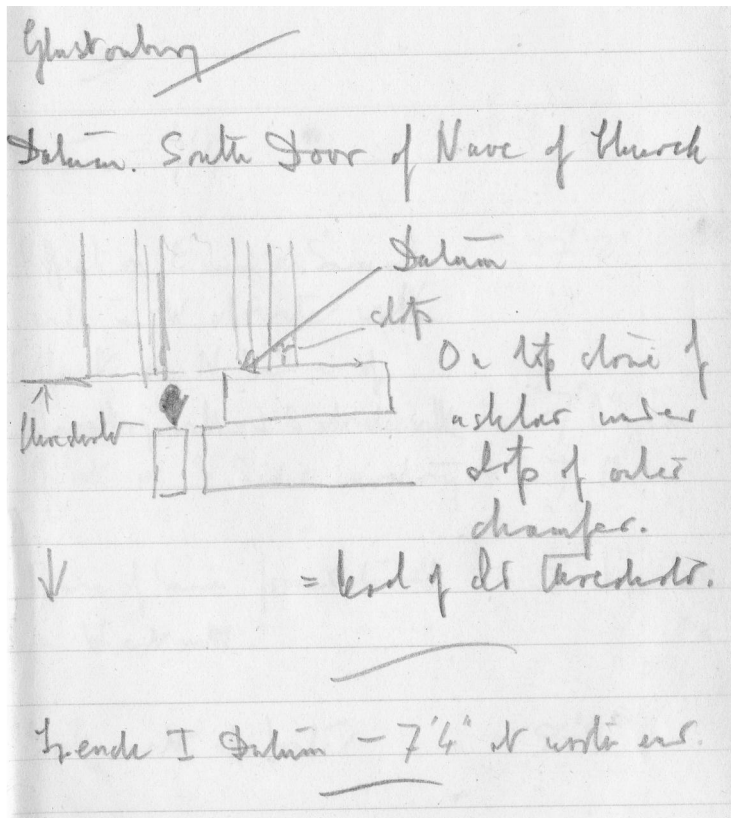 Glastonbury
Datum. South Door of Nave of Church
Datum
stop
On top stone of
threshold
ashlar under
stop of outer
chamfer.
= level of threshold.
Trench I Datum - 7'4" at north end.